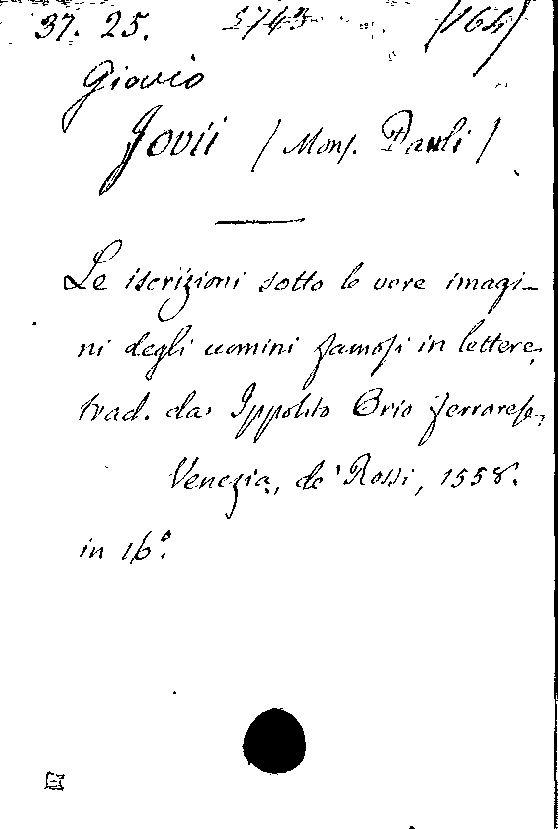 37. 25. 2743 (164)
Giovio
Jovii (Mons. Pauli)
Le iscrizioni sotto le vere imagi-
ni degli uomini famosi in lettere,
trad. da Ippolito Orio ferrarese,
Venezia, de' Rossi, 1558.
in 16°.